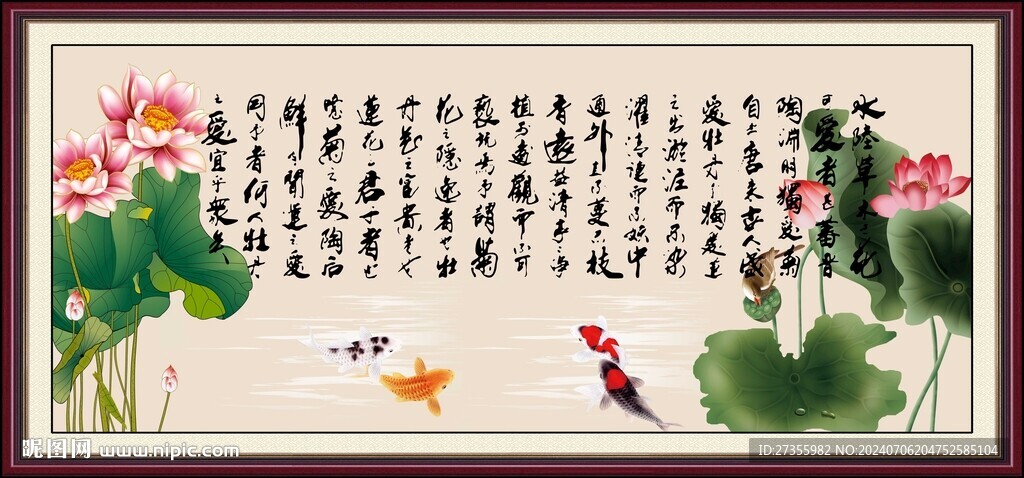 水陸草木之花
可愛者甚蕃晋
陶淵明獨愛菊
自李唐来世人盛
愛牡丹予獨愛蓮
之出淤泥而不染
濯清漣而不妖中
通外直不蔓不枝
香遠益清亭亭净
植可遠觀而不可
褻玩焉予謂菊
花之隱逸者也牡
丹花之富貴者也
蓮花之君子者也
噫菊之愛陶后
鮮有聞蓮之愛
同予者何人牡丹
之愛宜乎衆矣
昵图网 www.nipic.com
ID:27355982 NO:20240706204752585104